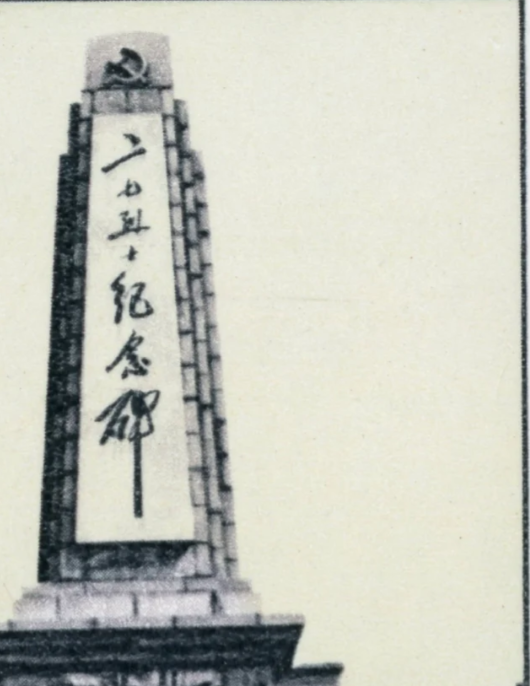 二七烈士纪念碑